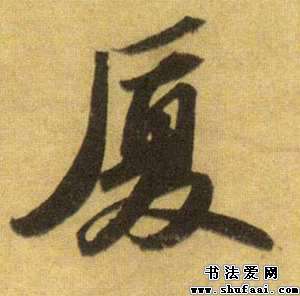 厦
书法爱网
www.shufaai.com